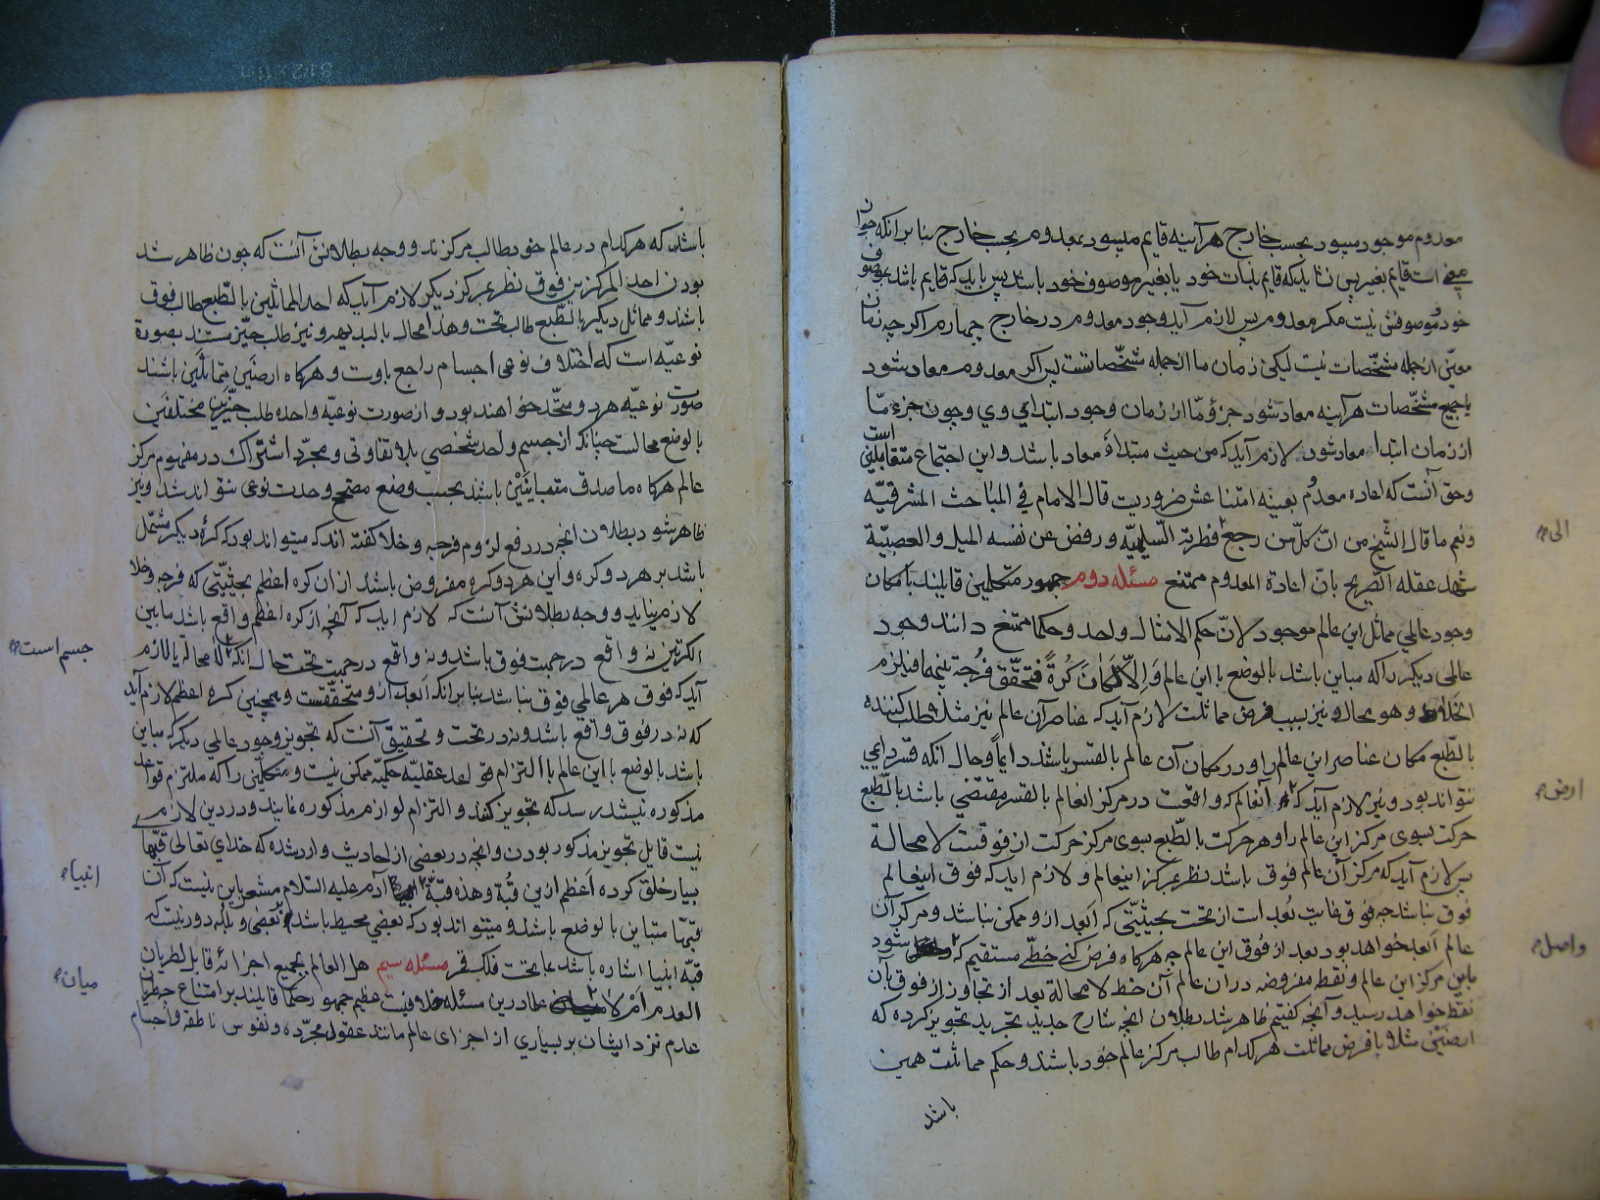 معدوم موجود میبود بحسب خارج هرآینه قایم میبود بمعدوم بحسب خارج بنابر آنکه جواز
معنی است قایم بغیر پس نشاید که قایم بذات خود یا بغیر موصوف خود باشد پس باید که قایم باشد بموصوف
خود و موصوفش نیست مکر معدوم پس لازم آید وجود معدوم در خارج چهارم اکرچه زمان
معین از جمله مشخصات نیست لیکن زمان ما از جمله مشخصاتست پس اکر معدوم معاد شود
با جمیع مشخصات هرآینه معاد شود جزؤ ما از زمان وجود ابتدایی وی و چون جزء ما
از زمان ابتدا معاد شود لازم آید که من حیث مبتداء معاد باشد و این اجتماع متقابلین است
وحق آنست که اعاده معدوم بعینه امتناعش ضروریست قال الامام فی المباحث المشرقیه
ونعم ما قال الشیخ من ان کل من رجع فطرته السلیمه ورفض عن نفسه المیل والعصبیه
شهد عقله الصریح بان اعادة المعدوم ممتنع مسئله دوم جمهور متکلمین قایلند بامکان
وجود عالمی مماثل این عالم موجود لان حکم الامثال واحد وحکما ممتنع دانند وجود
عالمی دیکر را که مباین باشد بالوضع با این عالم والا لکان کرة فتحقق فرجة بینهما فیلزم
الخلا وهو محال و نیز بسبب فرض مماثلت لازم آید که عناصر آن عالم نیز مثلا طلب کننده
بالطبع مکان عناصر این عالم را و در مکان آن عالم بالقسر باشد دایما وحال آنکه قسر دایمی
نتواند بود و نیز لازم آید که آنعالم که واقعست در مرکز انعالم بالقسر مقتضی باشد بالطبع
حرکت بسوی مرکز این عالم را و هر حرکت بالطبع بسوی مرکز حرکت از فوقست لا محالة
پس لازم آید که مرکز آن عالم فوق باشد نظر بمرکز اینعالم و لازم آید که فوق اینعالم
فوق نباشد چه فوق غایت بعد است از تحت بحیثیتی که ابعد ازو ممکن نباشد و مرکز آن
عالم ابعد خواهد بود بعد از فوق این عالم چه هرکاه فرض کنی خطی مستقیم که شود
مابین مرکز این عالم و نقط مفروضه در ان عالم آن خط لا محالة بعد از تجاوز از فوق بآن
نقط خواهد رسید و آنچه کفتیم ظاهر شد بطلان آنچه شارح جدید تجرید تجویز کرده که
ارضین مثلا با فرض مماثلت هرکدام طالب مرکز عالم خود باشند و حکم مماثلت همین
باشد
الی
ارض
واصل
باشد که هرکدام در عالم خود طالب مرکزند و وجه بطلانش آنست که چون ظاهر شد
بودن احد المرکزین فوق نظر بمرکز دیکر لازم آید که احد المماثلین بالطبع طالب فوق
باشد و مماثل دیکر بالطبع طالب تحت وهذا محال بالبدیهه و نیز طلب حیز مستند بصورة
نوعیه است که اختلاف نوعی اجسام راجع باوست و هرکاه ارضین متماثلین باشند
صورت نوعیه هردو متحد خواهند بود و از صورت نوعیه واحده طلب حیزین مختلفین
بالوضع محالست چنانکه از جسم واحد شخصی بلا تفاوتی و مجرد اشتراک در مفهوم مرکز
عالم هرکاه ماصدق متباینین باشد بحسب وضع مصحح وحدت نوعی نتواند شد و نیز
ظاهر شود بطلان انچه در رفع لزوم فرجه و خلا کفته اند که میتواند بود که کرهٔ دیکر مشتمل
باشد بر هر دو کره و این هر دو کره مفروض باشد از ان کره اعظم بحیثیتی که فرجه و خلا
لازم نیاید و وجه بطلانش آنست که لازم آید که آنچه از کره اعظم واقع باشد مابین
الکرتین نه واقع در جهت فوق باشد و نه واقع در جهت تحت حال آنکه لا محالة یا لازم
آید که فوق هر عالمی فوق نباشد بنابر آنکه ابعد ازو متحققست و همچنین کره اعظم لازم آید
که نه در فوق واقع باشد و نه در تحت و تحقیق آنست که تجویز وجود عالمی دیکر که مباین
باشد بالوضع با این عالم با التزام قواعد عقلیه حکمیه ممکن نیست و متکلمین را که ملتزم قواعد
مذکوره نیستند رسد که تجویز کنند و التزام لوازم مذکوره نمایند و در دین لازم
نیست قایل تجویز مذکور بودن و آنچه در بعضی از احادیث وارد شده که خدای تعالی قبها
بسیار خلق کرده اعظم ازین قبه وهذه قبة آدم علیه السلام مشعر باین نیست که آن
قبها متباین بالوضع باشد و میتواند بود که بعضی محیط باشد ببعضی و بلکه دور نیست که
قبه انبیا اشاره باشد بما تحت فلک قمر مسئله سیم هل العالم بجمیع اجزائه قابل لطریان
العدم ام لا علما درین مسئله خلافیست عظیم جمهور حکما قایلند بر امتناع طریان
عدم نزد ایشان بر بسیاری از اجزای عالم مانند عقول مجرده و نفوس ناطقه و اجسام
جسم است
انبیا
میان